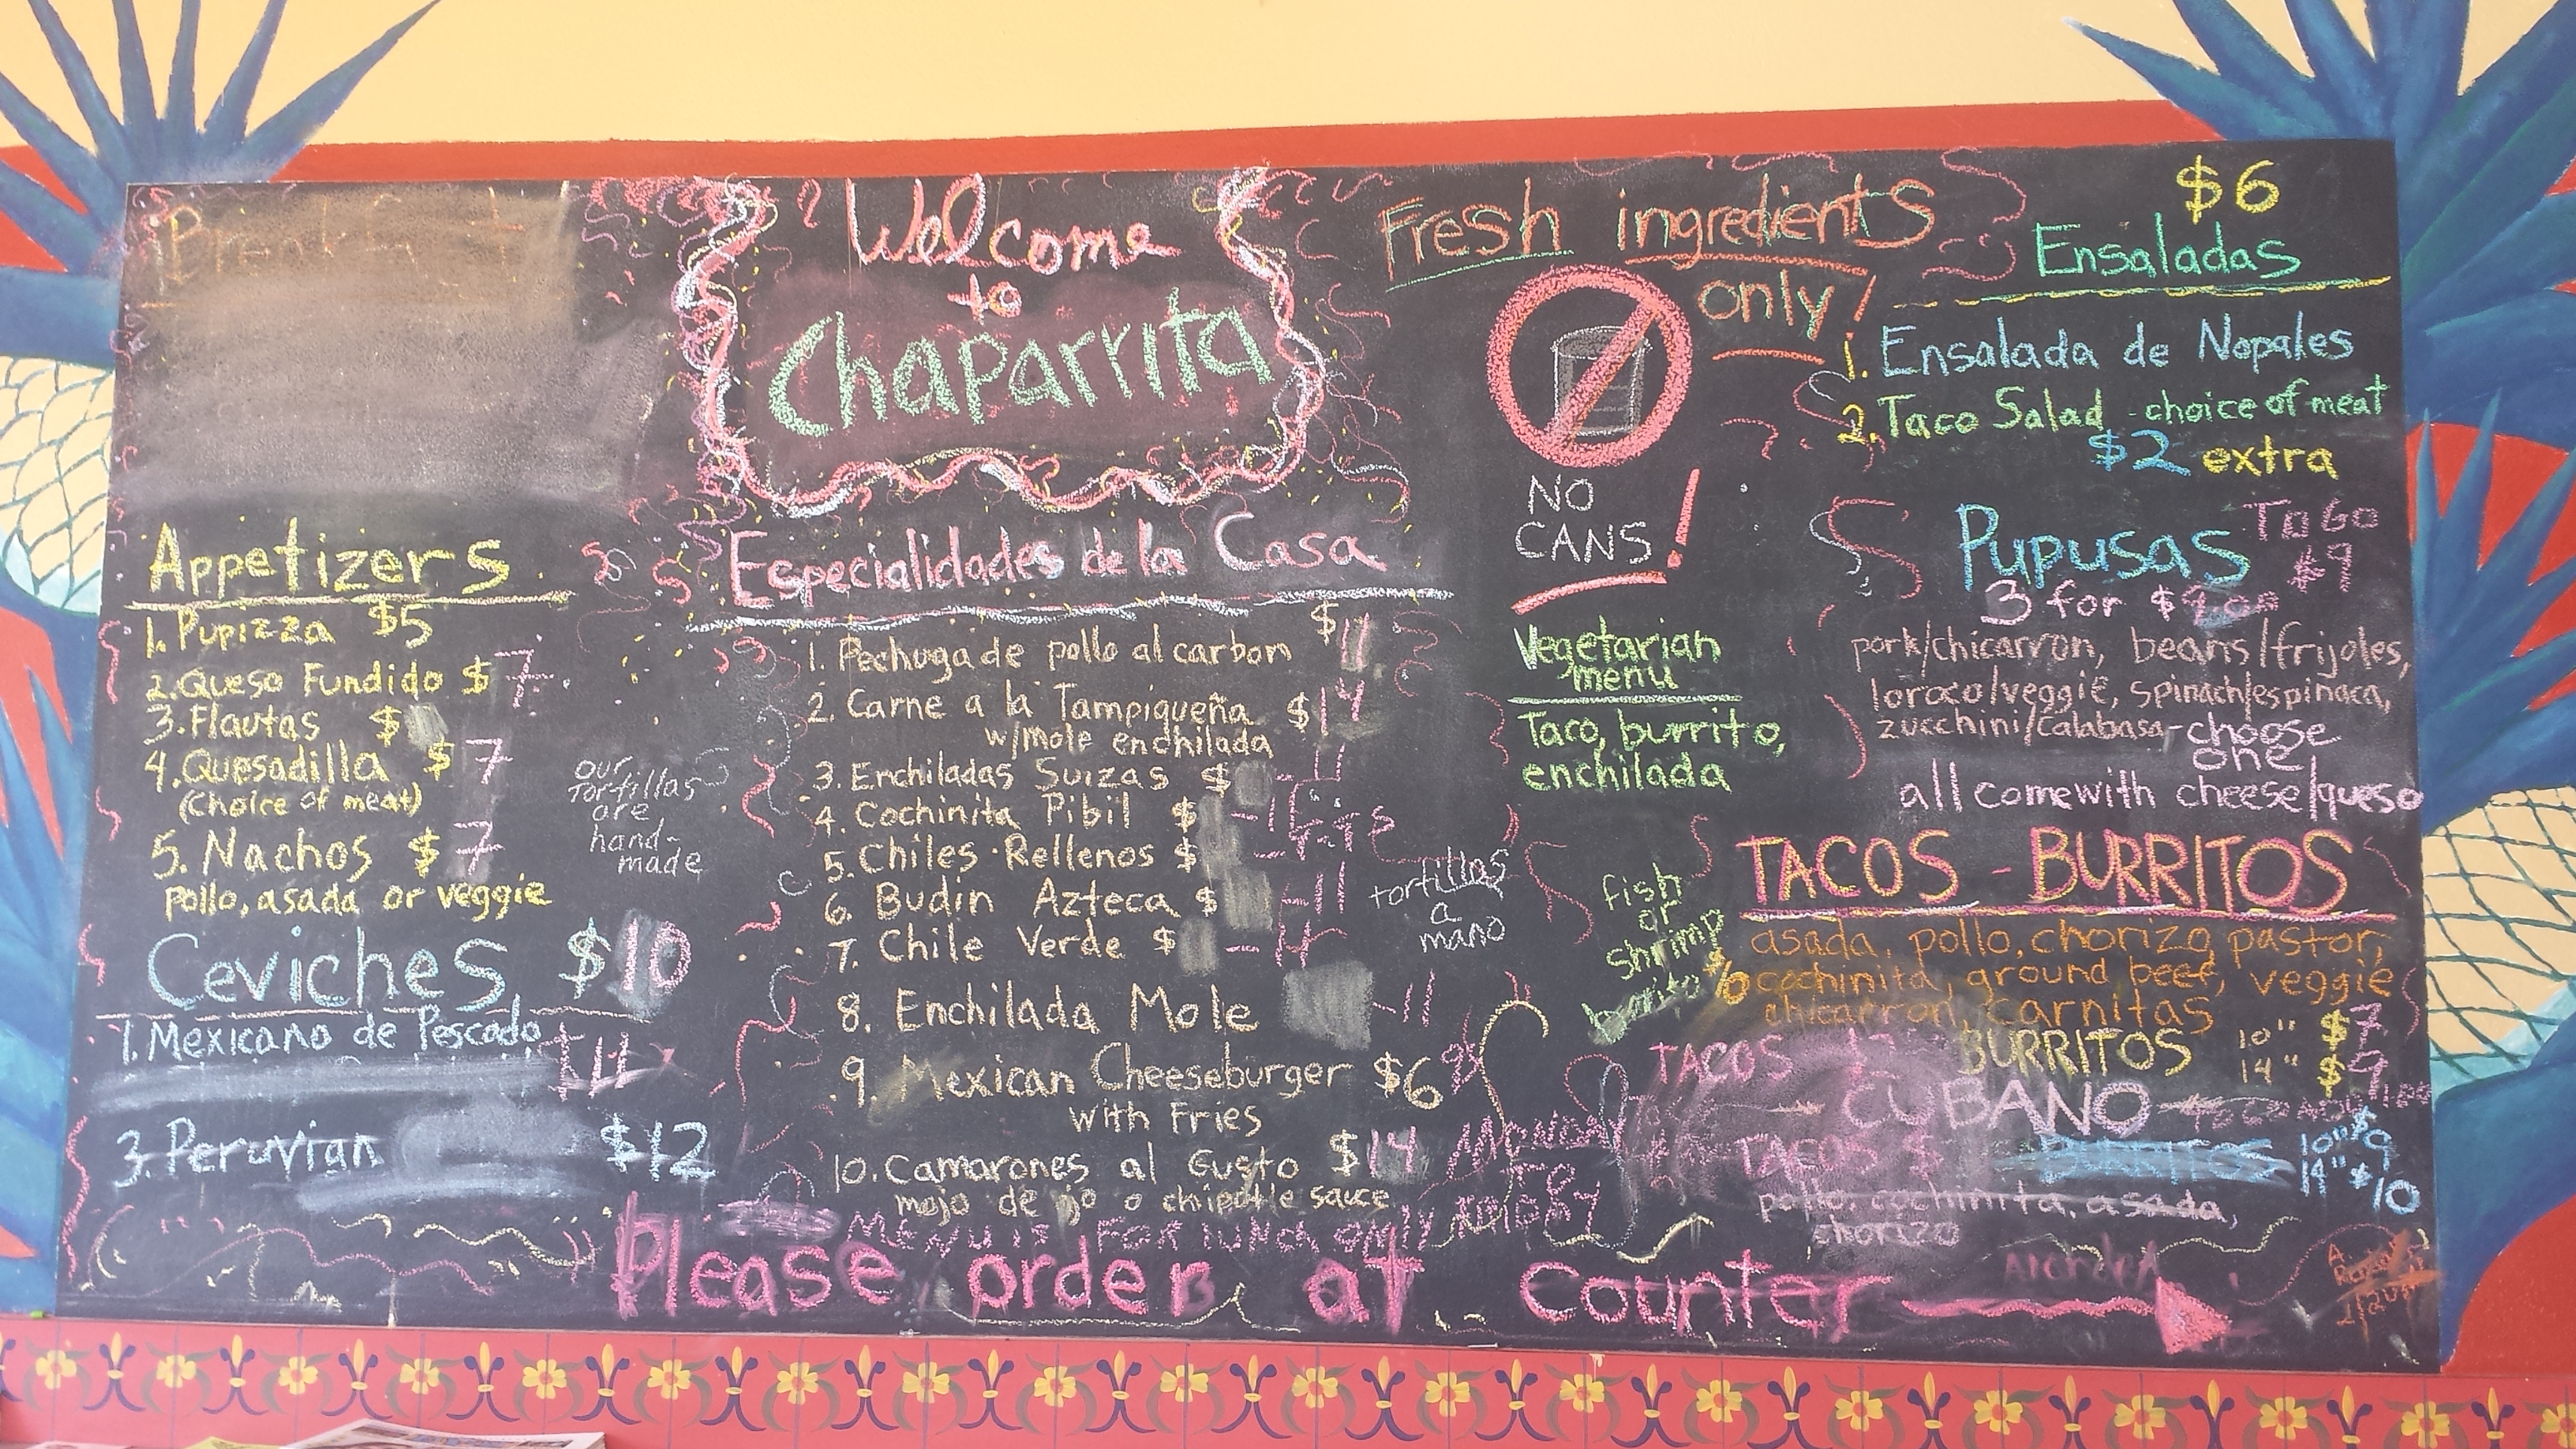 Welcome
to
Chaparrita
Appetizers
1. Pupizza $5
2. Queso Fundido $7
3. Flautas $
4. Quesadilla $7
(Choice of meat)
5. Nachos $7
pollo, asada or veggie
our
tortillas
are
hand-
made
Ceviches $10
1. Mexicano de Pescado
3. Peruvian $12
Especialidades de la Casa
1. Pechuga de pollo al carbon $11
2. Carne a la Tampiqueña $14
w/mole enchilada
3. Enchiladas Suizas $ -11
4. Cochinita Pibil $
5. Chiles Rellenos $
6. Budin Azteca $ -11
7. Chile Verde $
8. Enchilada Mole -11
9. Mexican Cheeseburger $6
with Fries
10. Camarones al Gusto $14
mojo de jo o chipotle sauce
tortillas
a
mano
Fresh ingredients
only!
NO
CANS!
Vegetarian
menu
Taco, burrito,
enchilada
fish
or
shrimp
burrito
$6
Ensaladas
1. Ensalada de Nopales
2. Taco Salad - choice of meat
$2 extra
Pupusas TO GO
$9
3 for $
pork/chicarron, beans/frijoles,
loroco/veggie, spinach/espinaca,
zucchini/calabasa - choose
one
all come with cheese/queso
TACOS - BURRITOS
asada, pollo, chorizo, pastor,
cochinita, ground beef, veggie
chicarron, carnitas
TACOS
BURRITOS 10" $7
14" $9
CUBANO
TACOS $
BURRITOS 10" $9
14" $10
pollo, cochinita, asada,
chorizo
MONDAY
TO
FRIDAY
MENU IS FOR LUNCH ONLY
Please order at counter